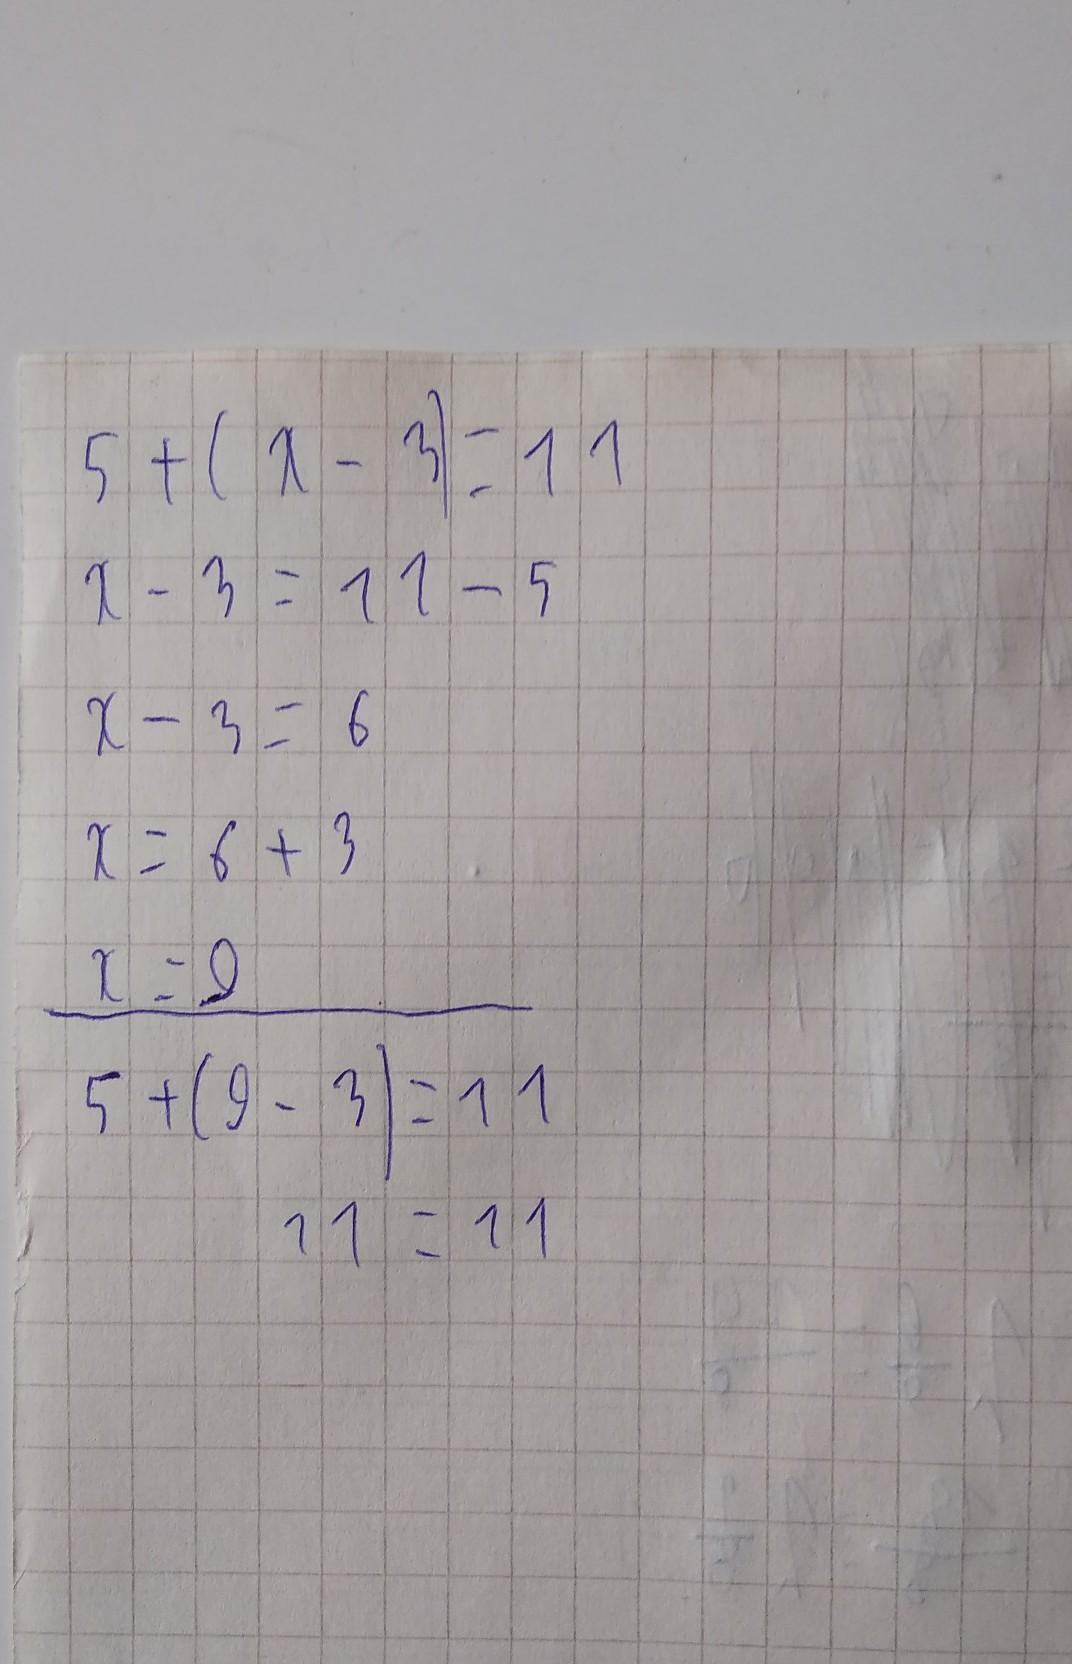 5 + (x - 3) = 11
x - 3 = 11 - 5
x - 3 = 6
x = 6 + 3
x = 9
5 + (9 - 3) = 11
11 = 11